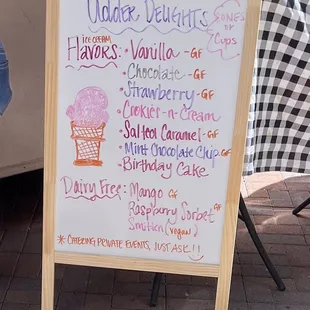 Udder Delights
Cones
or
Cups
ICE CREAM
Flavors:
• Vanilla - GF
• Chocolate - GF
• Strawberry - GF
• Cookies-n-Cream
• Salted Caramel - GF
• Mint Chocolate Chip - GF
• Birthday Cake
Dairy Free:
Mango GF
Raspberry Sorbet GF
(vegan)
* CATERING PRIVATE EVENTS, JUST ASK!!